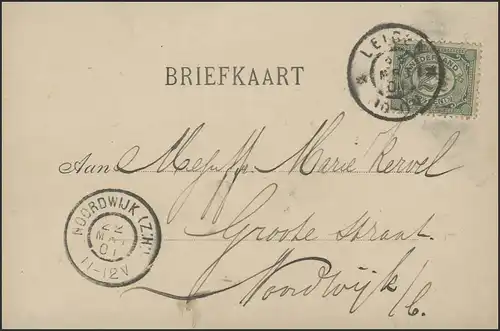 BRIEFKAART
LEIDEN
NEDERLAND
Aan Mejuffr. Marie Kervel
Groote straat.
Noordwijk a/b.
NOORDWIJK (Z:H)
22
MRT
01
11-12V